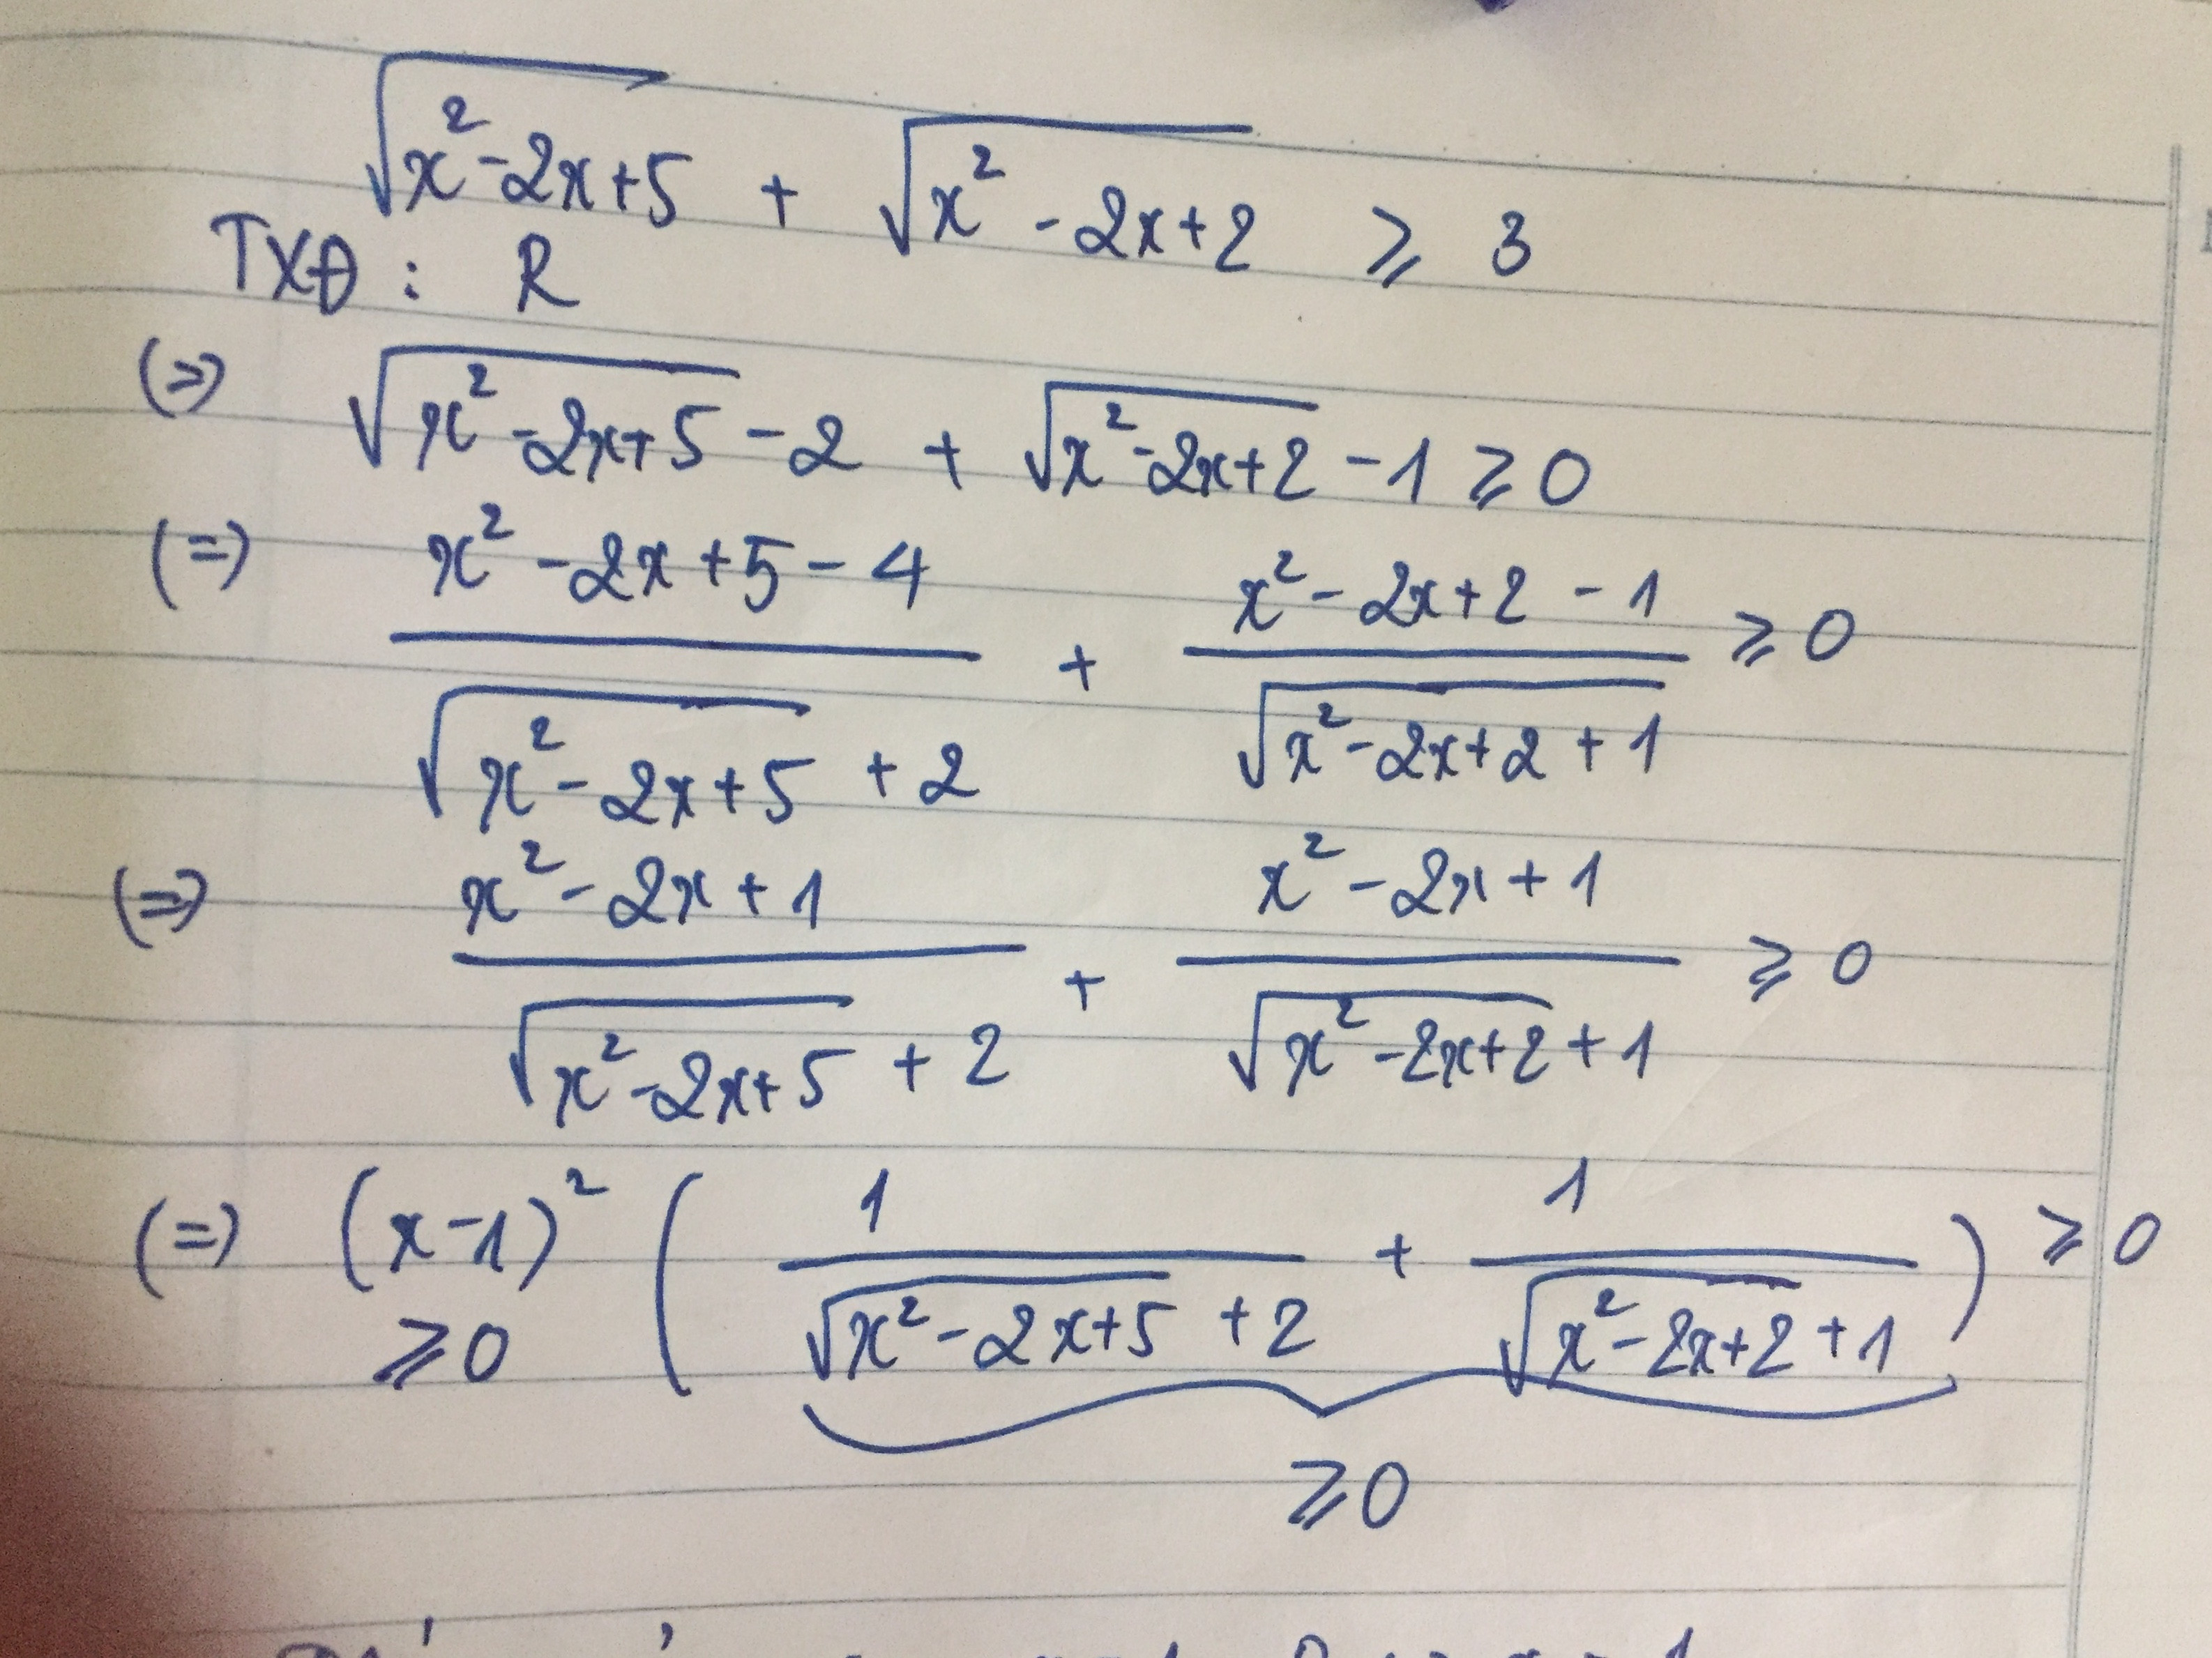 √(x² - 2x + 5) + √(x² - 2x + 2) ⩾ 3
TXĐ : R
(=>) √(x² - 2x + 5) - 2 + √(x² - 2x + 2) - 1 ⩾ 0
(=) (x² - 2x + 5 - 4)/(√(x² - 2x + 5) + 2) + (x² - 2x + 2 - 1)/(√(x² - 2x + 2 + 1)) ⩾ 0
(=>) (x² - 2x + 1)/(√(x² - 2x + 5) + 2) + (x² - 2x + 1)/(√(x² - 2x + 2) + 1) ⩾ 0
(=) (x - 1)² (1/(√(x² - 2x + 5) + 2) + 1/(√(x² - 2x + 2) + 1)) ⩾ 0
⩾ 0
⩾ 0